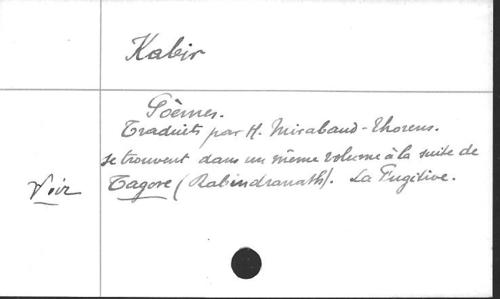 Kabir
Poèmes.
Traduits par H. Mirabaud-Thorens.
se trouvent dans un même volume à la suite de
Voir Tagore (Rabindranath). La Fugitive.